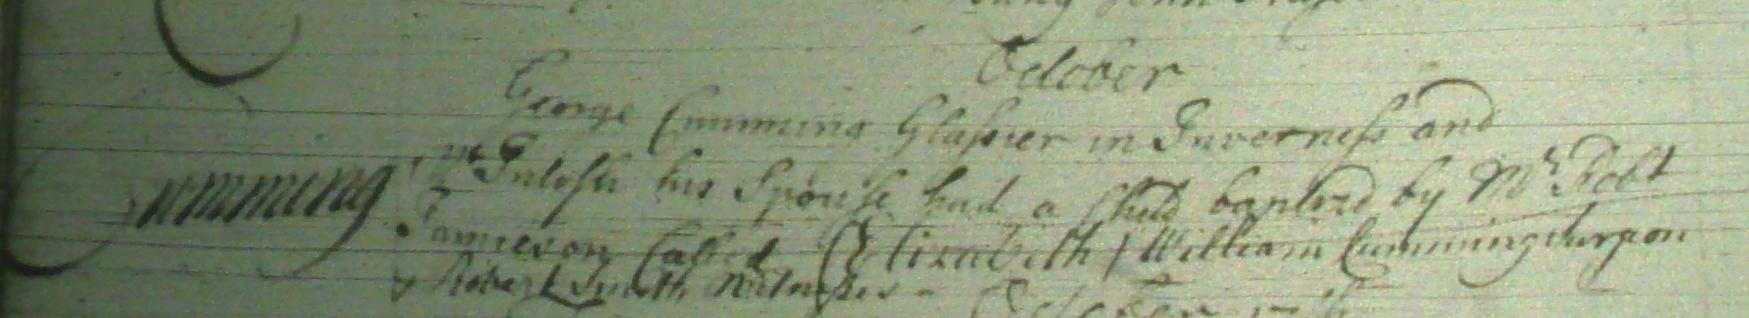 October
George Cumming Glassier in Inverness and
Cumming
McIntosh his Spouse had a Child baptized by Mr Robt
Jamieson Called Elizabeth William Cumming Surgeon
& Robert Smith Witnesses -
October